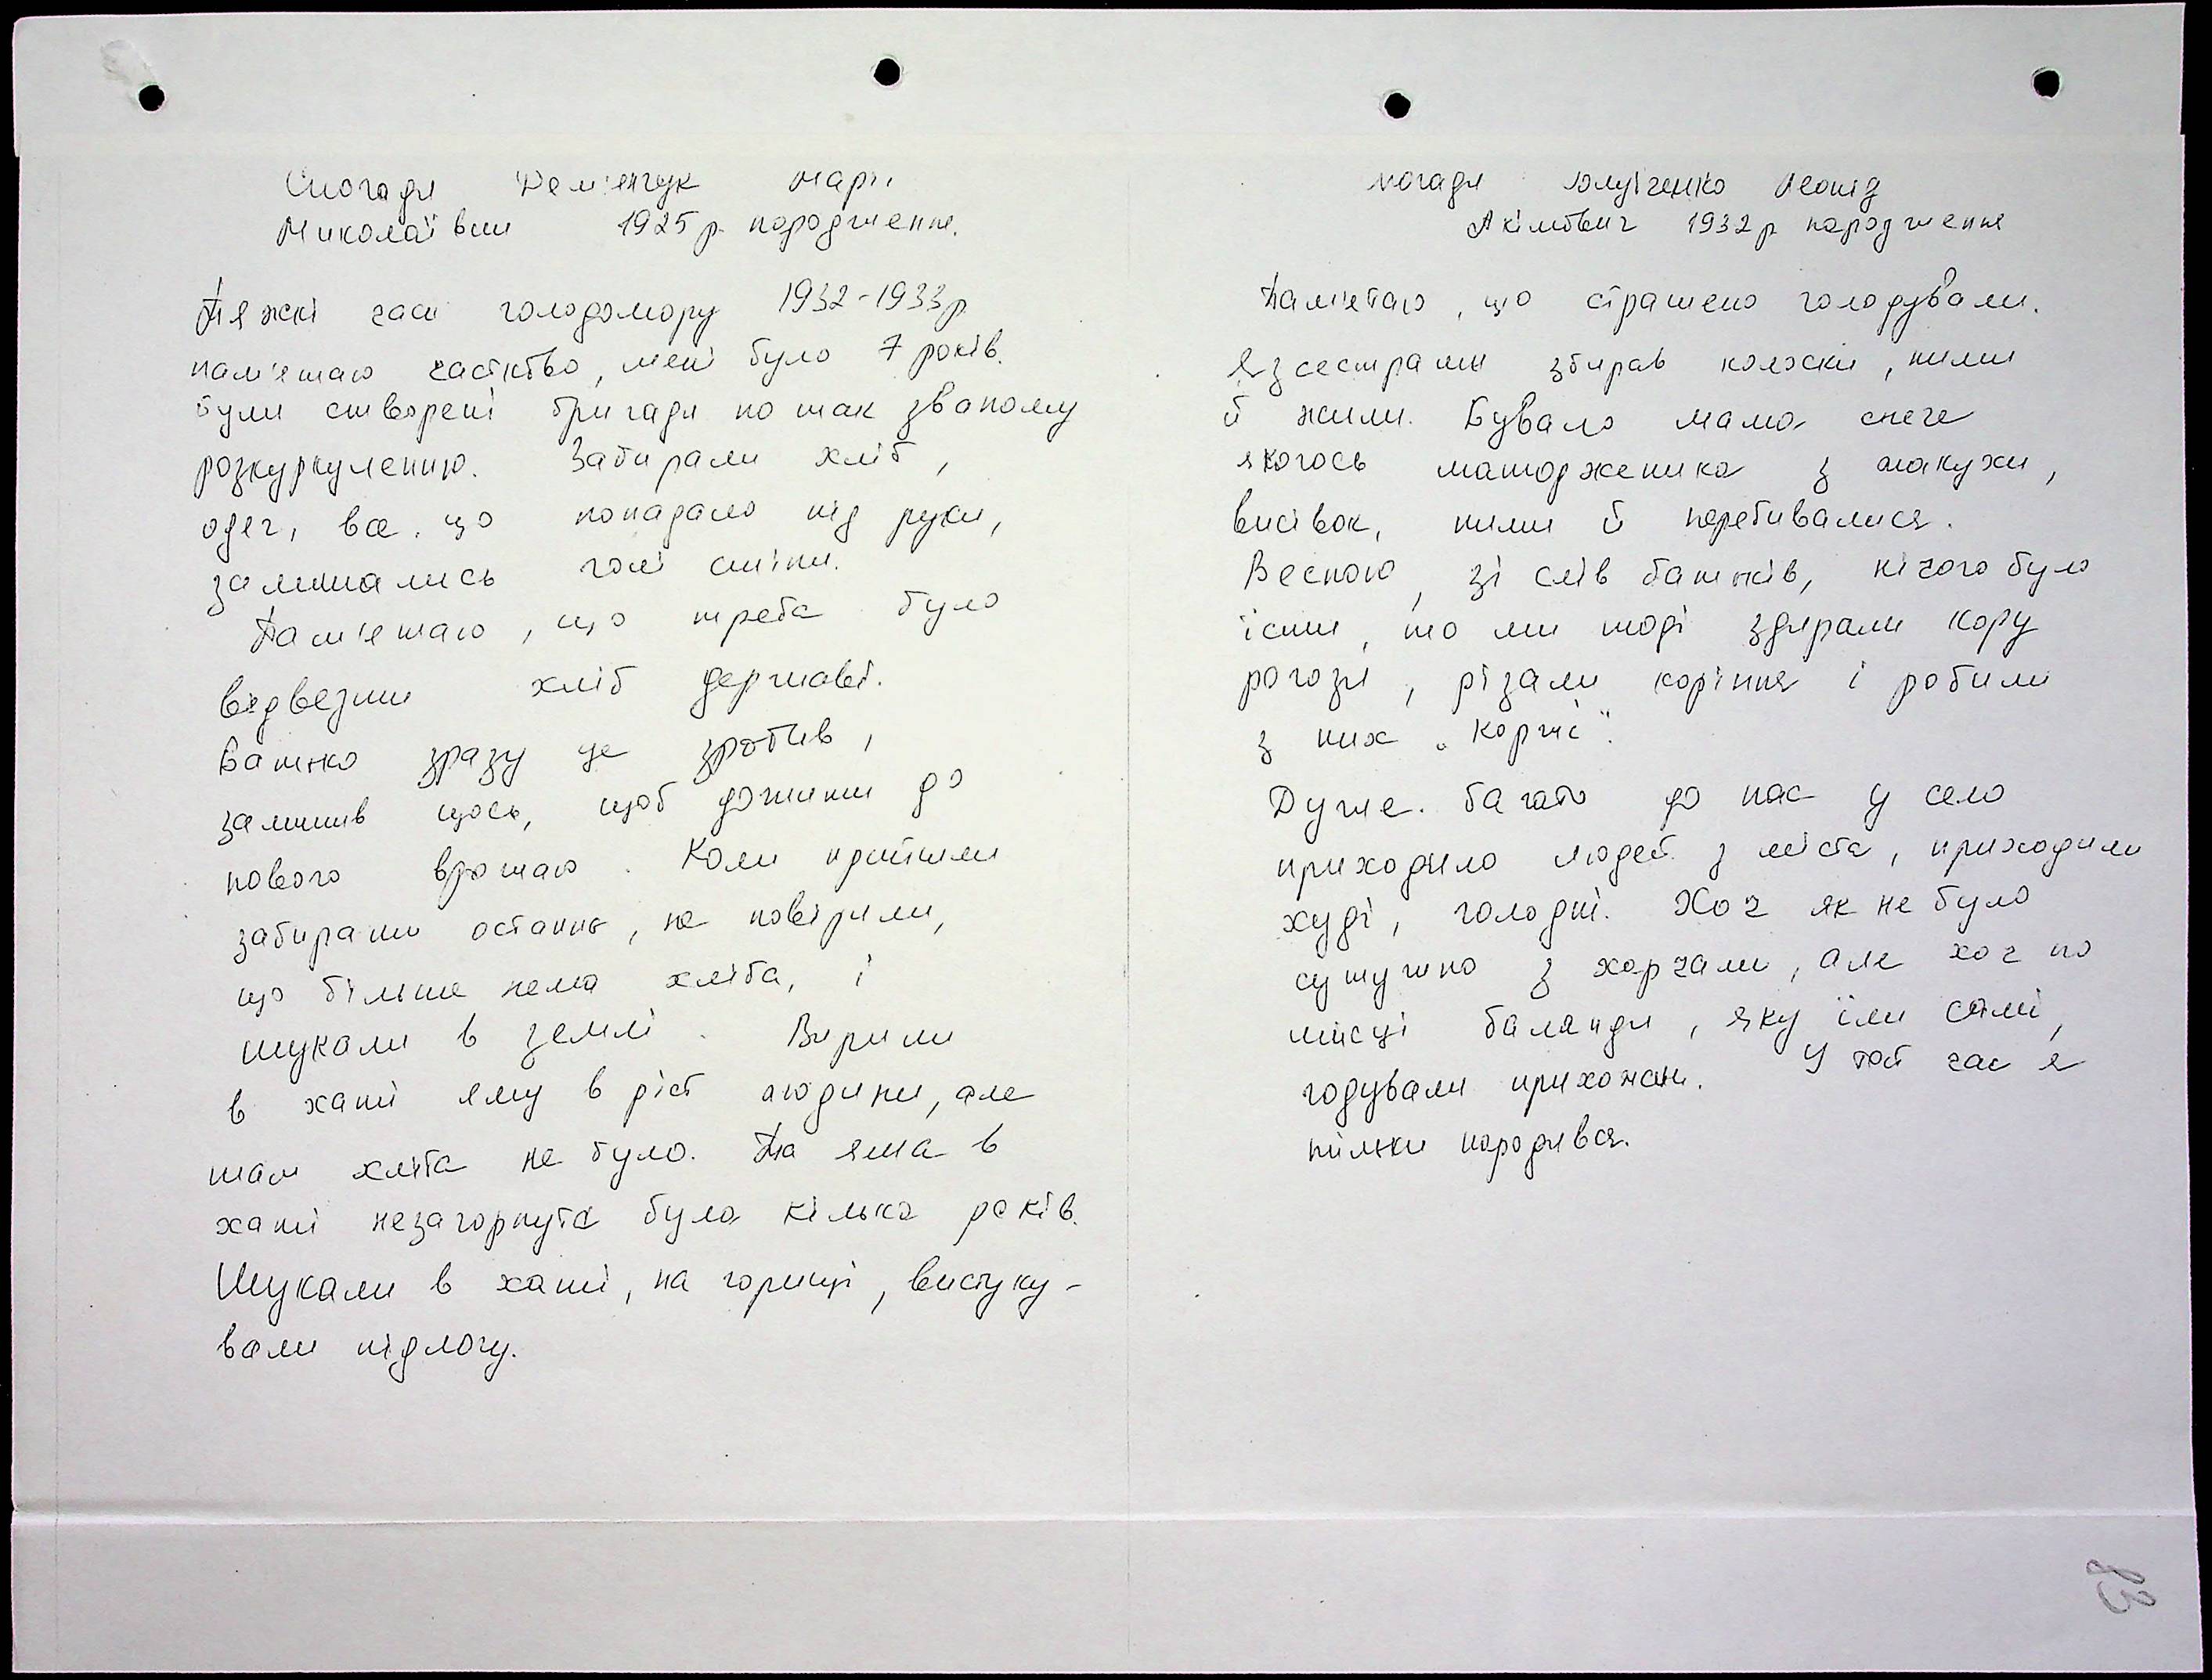 Спогади Дем'янчук Марії
Миколаївни 1925 р. народження.
Тяжкі часи голодомору 1932-1933р
пам'ятаю частково, мені було 7 років.
були створені бригади по так званому
розкуркуленню. Забирали хліб,
одяг, все, що попадало під руки,
залишались голі стіни.
Пам'ятаю, що треба було
відвезти хліб державі.
Батько зразу це зробив,
залишив щось, щоб дожити до
нового врожаю. Коли прийшли
забирати останнє, не повірили,
що більше нема хліба, і
шукали в землі. Вирили
в хаті яму в ріст людини, але
там хліба не було. Та яма в
хаті незагорнута була кілька років.
Шукали в хаті, на горищі, вистуку-
вали підлогу.
погади Леонід
Акімович 1932р народження
Пам'ятаю, що страшено голодували.
Я з сестрами збирав колоски, ними
й жили. Бувало мама спече
якогось маторженика з макухи,
висівок, ними й перебивалися.
Весною, зі слів батьків, нічого було
їсти, то ми тоді здирали кору
рогози, різали коріння і робили
з них „Коржі".
Дуже. багато до нас у село
приходило людей з міста, приходили
худі, голодні. Хоч як не було
сутужно з харчами, але хоч по
мисці баланди, яку їли самі,
годували прихожан. У той час я
тільки народився.
83